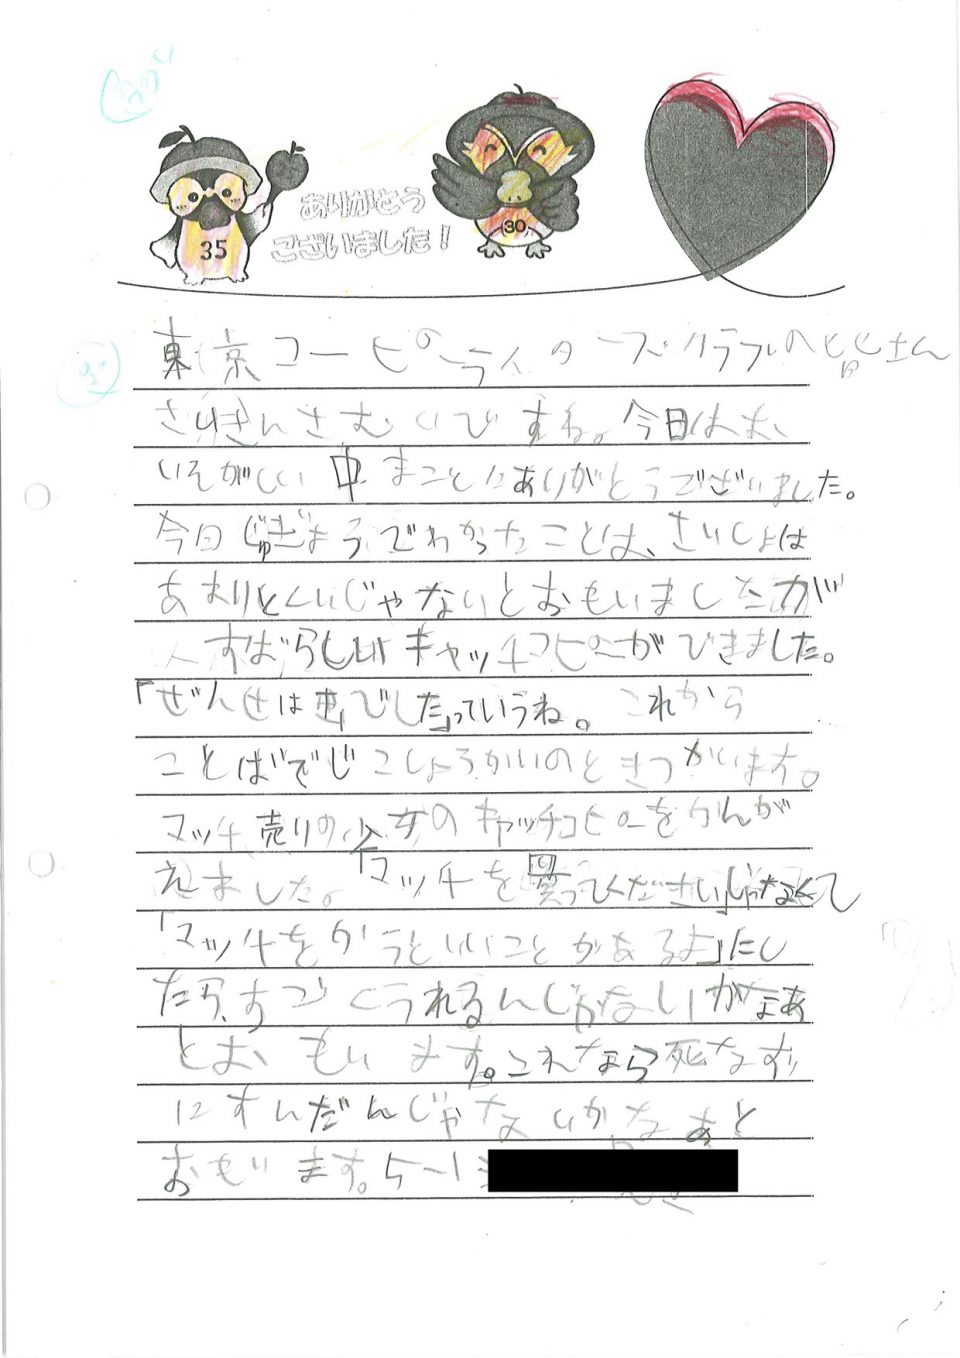 ありがとう
ございました！
35
30
東京コーピーライターズクラブの皆さん
さいきんさむいですね。今日はお、
いそがしい中まことにありがとうございました。
今日じゅぎょうでわかったことは、さいしょは
あまりとくいじゃないとおもいましたが
すばらしいキャッチコピーができました。
「ぜんせは
でした」っていうね。これから
ことばでじこしょうかいのときつかいます。
マッチ売りの少女のキャッチコピーをかんが
えました。「マッチを買ってください」じゃなくて
「マッチをかうといいことがあるよ」にし
たら、すごくうれるんじゃないかなあ
とおもいます。これなら死なず
にすんだんじゃないかなあと
おもいます。5-1